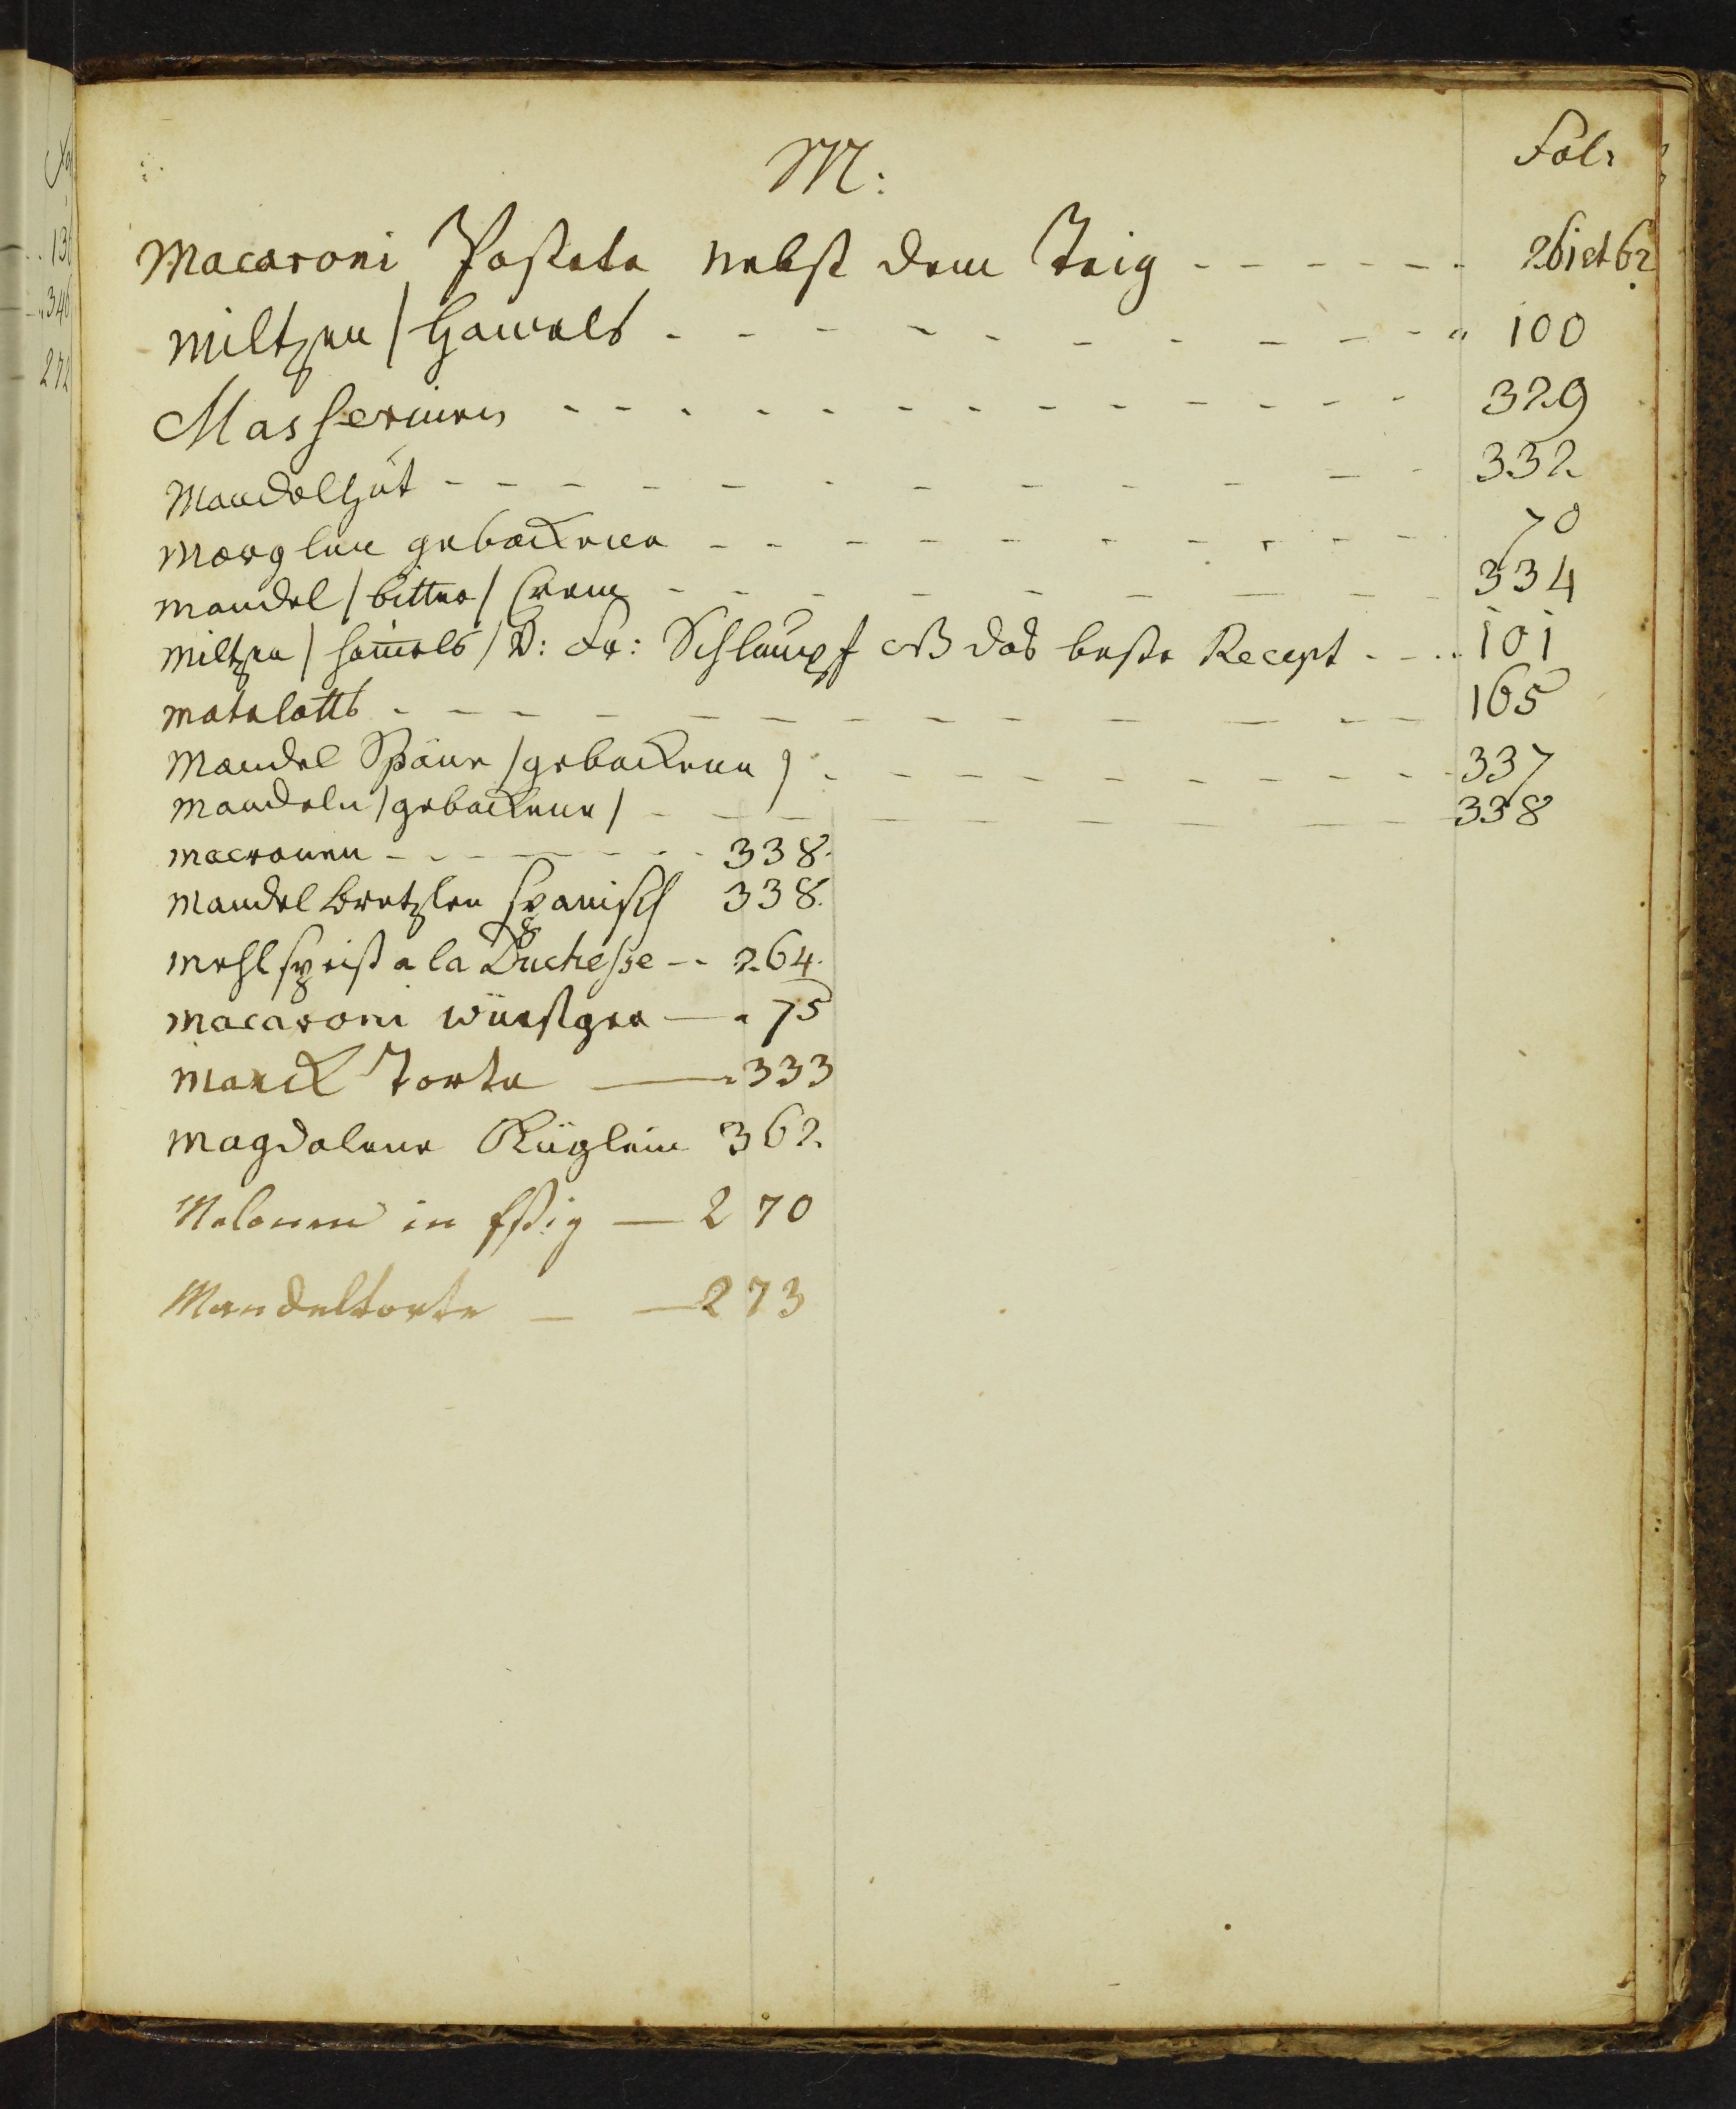 M:
Fol:
Macaroni Pastete nebst dem Teig - - - - - - 261 et 62
Miltzen / Hamels - - - - - - - - - - 100
Masserinen - - - - - - - - - - - - 329
Mandelhüt - - - - - - - - - - - 332
Morglen gebackene - - - - - - - - - - 70
Mandel / bittre / Crem - - - - - - - - - 334
Miltzen / Ham̅els / v: Fr: Schlumpf das beste Recept - - - 101
Matelotts - - - - - - - - - - - - 165
Mandel Späne / gebackene / - - - - - - - - - 337
Mandeln / gebackene / - - - - - - - - - 338
Macronen - - - - - - - 338.
Mandel Bretzlen spanisch 338.
Mehlspeiß a la Duchesse - - 264.
Macaroni würstger - - 75
Marck Torte - 333
Magdalene Küglein 362.
Melonen in Essig - 270
Mandeltorte - - 273
136
346
272